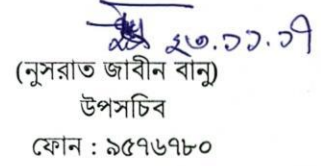 ২৩.১১.১৭
(নুসরাত জাবীন বানু)
উপসচিব
ফোন : ৯৫৭৬৭৮০